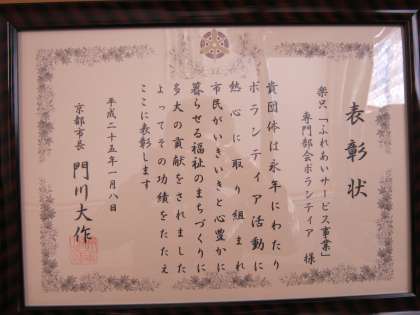 表彰状
楽只「ふれあいサービス事業」
専門部会ボランティア 様
貴団体は永年にわたり
ボランティア活動に
熱心に取り組まれ
市民がいきいきと心豊かに
暮らせる福祉のまちづくりに
多大の貢献をされました
よってその功績をたたえ
ここに表彰します
平成二十五年一月八日
京都市長 門川大作